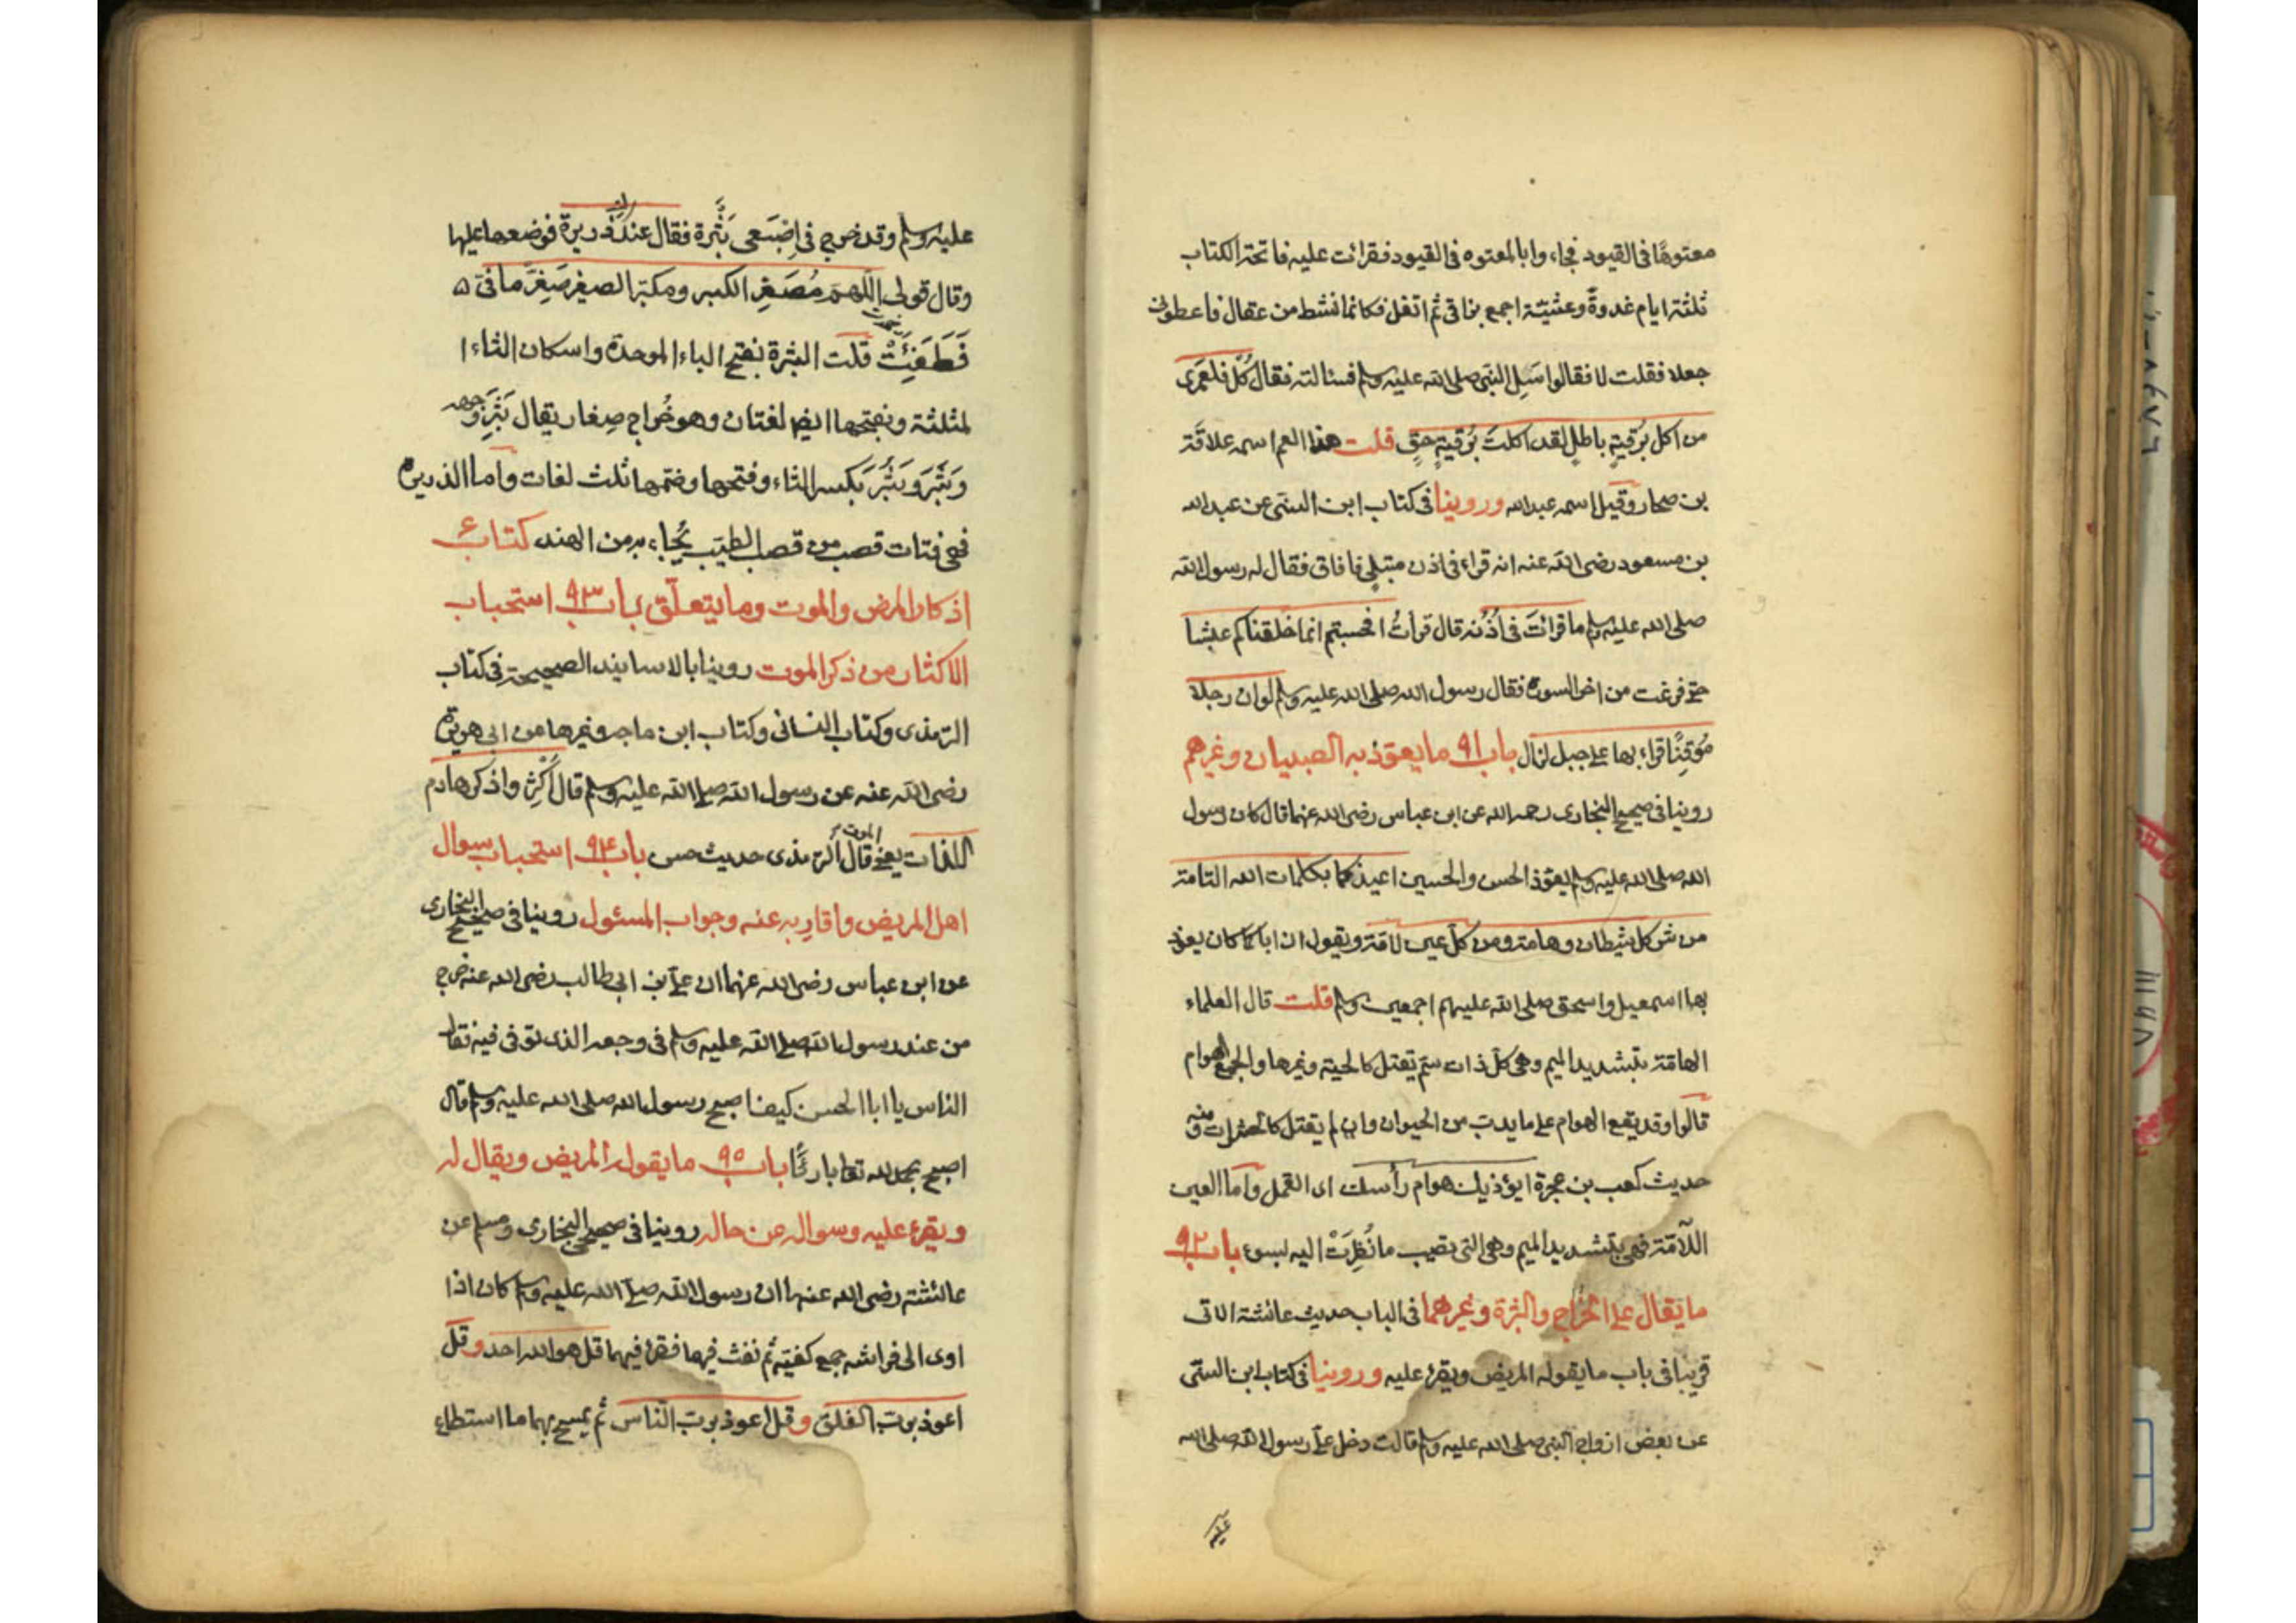 معتوهًا في القيود فجاءوا بالمعتوه في القيود فقرات عليه فاتحة الكتاب
ثلثة ايام غدوةً وعشيّة اجمع بزاقي ثم اتفل فكانما نشط من عقال فاعطوني
جعلا فقلت لا فقالوا سَلِ النبي صلى الله عليه وسلم فسالته فقال كُلْ فلعَمري
من اكل برُقيةٍ باطلٍ لقد اكلتَ برُقيةٍ حقٍ قلت هذا العم اسمه علاقَة
بن صحار وقيل اسمه عبد الله وروينا في كتاب ابن السني عن عبد الله
بن مسعود رضى الله عنه انه قراء في اذن مبتلى فافاق فقال له رسول الله
صلى الله عليه وسلم ما قراتَ في اُذُنه قال قراتُ افحسبتم انما خلقناكم عبثا
حتى فرغت من اخر السورة فقال رسول الله صلى الله عليه وسلم لو ان رجلا
مُوقِنًا قراء بها على جبل لزال باب ٩١ ما يعوّذ به الصبيان وغيرهم
روينا في صحيح البخارى رحمه الله عن ابن عباس رضى الله عنهما قال كان رسول
الله صلى الله عليه وسلم يعوّذ الحسن والحسين اعيذكما بكلمات الله التامة
من شر كل شيطان وهامة ومن كلّ عين لامّة ويقول ان اباكما كان يعوذ
بها اسمعيل واسحق صلى الله عليهم اجمعين وسلم قلت قال العلماء
الهامّة بتشديد الميم وهي كلّ ذات سمّ يقتل كالحية وغيرها والجمع الهوام
قالوا وقد يقع الهوام على ما يدبّ من الحيوان وان لم يقتل كالحشرات ومنه
حديث كعب بن عجرة ايؤذيك هوام رأسك اى القمل وأما العين
اللامّة فهي بتشديد الميم وهي التي تصيب ما نُظِرَتْ اليه بسوء باب ٩٢
ما يقال على الخُراج والبثرة وغيرهما في الباب حديث عائشة الاتى
قريبا في باب ما يقوله المريض ويقرء عليه وروينا في كتاب ابن السنّى
عن بعض ازواج النبي صلى الله عليه وسلم قالت دخل علىّ رسول الله صلى الله
عليه
عليه وسلم وقد خرج في اِصْبَعي بَثْرة فقال عندكِ ذَريرة فوضعها عليها
وقال قولي اللّهمّ مُصَغِّر الكبير ومكبّر الصغير صَغِّر ما في
فَطَفِئَتْ قلت البثرة بفتح الباء الموحدة واسكان الثاء ا
لمثلثة وبفتحها ايضا لغتان وهو خُراج صِغار يقال بَثِرَ وجهه
وَبَثَرَ وَبَثُرَ بكسر الثاء وفتحها وضمّها ثلث لغات وأما الذريرة
فهى فتات قصب من قصب الطيب يُجاء به من الهند كتاب
اذكار المرض والموت وما يتعلّق باب ٩٣ استحباب
الاكثار من ذكر الموت روينا بالاسانيد الصحيحة في كتاب
الترمذى وكتاب النسائى وكتاب ابن ماجه وغيرها عن ابي هريرة
رضى الله عنه عن رسول الله صلى الله عليه وسلم قال اَكْثِرُوا ذكر هادم
اللذات يعنى الموت قال الترمذى حديث حسن باب ٩٤ استحباب سوال
اهل المريض واقاربه عنه وجواب المسئول روينا في صحيح البخارى
عن ابن عباس رضى الله عنهما ان علىّ بن ابي طالب رضى الله عنه خرج
من عند رسول الله صلى الله عليه وسلم في وجعه الذى توفى فيه فقال
الناس يا ابا الحسن كيف اصبح رسول الله صلى الله عليه وسلم قال
اصبح بحمد الله تعالى بارئًا باب ٩٥ ما يقوله المريض ويقال له
ويقرء عليه وسواله عن حاله روينا في صحيحى البخارى ومسلم عن
عائشة رضى الله عنها ان رسول الله صلى الله عليه وسلم كان اذا
اوى الى فراشه جمع كفيه ثم نفث فيها فقرء فيهما قل هو الله احد وقل
اعوذ برب الفلق وقل اعوذ برب النّاس ثم يمسح بهما ما استطاع